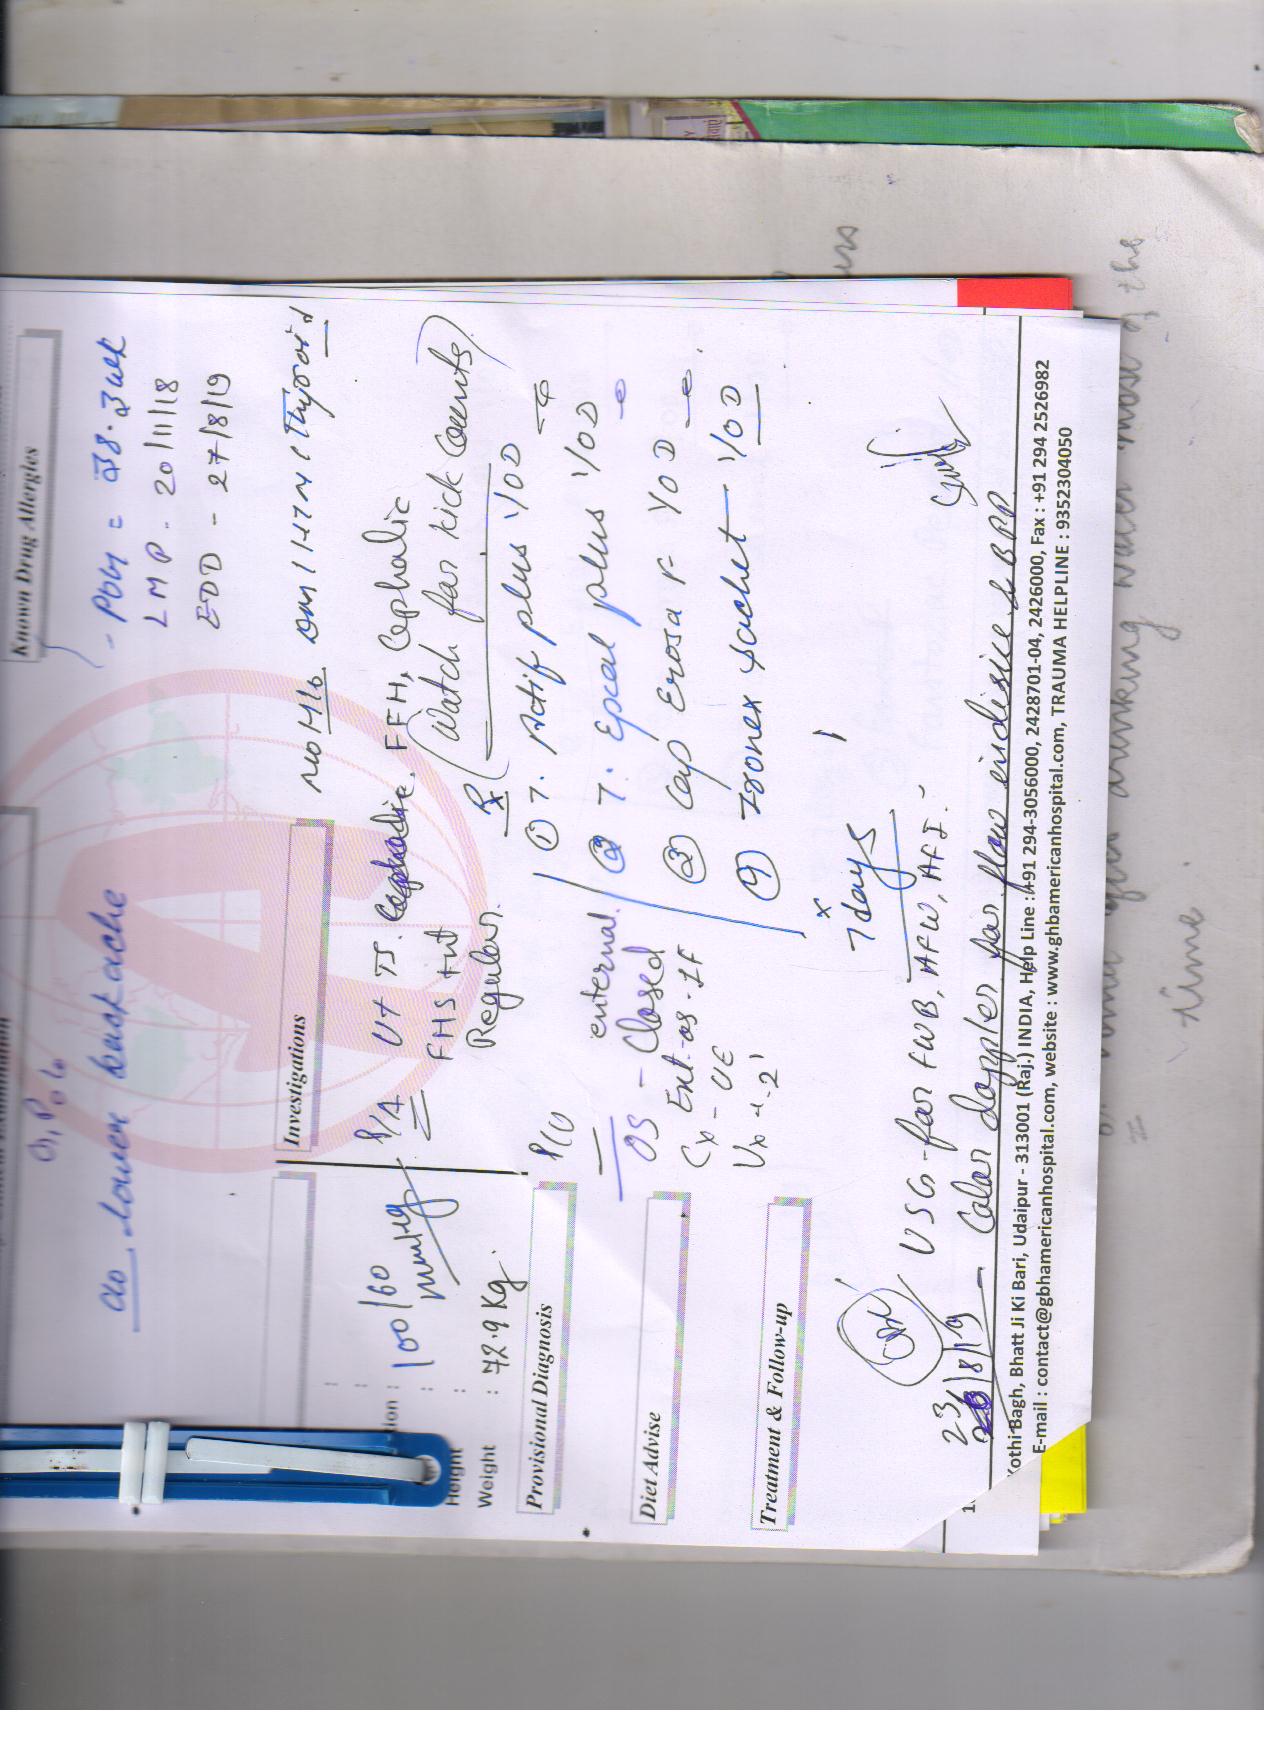 Known Drug Allergies
- POG = 38.3 wk
LMP - 20/11/18
EDD - 27/8/19
G1P0L0
c/o lower backache
Investigations
no H/o DM/HTN/Thyroid
100/60 mmHg
P/A Ut TS. FFH, Cephalic
FHS +nt
Regular.
(Watch for kick counts)
Height :
Weight : 72.9 Kg.
Rx
① T. Actif plus 1/OD
② T. Epcal plus 1/OD
③ Cap Erosa F 1/OD
④ Izonex sachet 1/OD
x
7 days
Provisional Diagnosis
P/V
external
OS - Closed
Ext-os-1F
Cx - UE
Vx ↑-2
Diet Advise
Treatment & Follow-up
USG for FWB, AFW, AFI.
23/8/19 - Color doppler for flow indisice & BPP
Kothi Bagh, Bhatt Ji Ki Bari, Udaipur - 313001 (Raj.) INDIA, Help Line : +91 294-3056000, 2428701-04, 2426000, Fax : +91 294 2526982
E-mail : contact@gbhamericanhospital.com, website : www.ghbamericanhospital.com, TRAUMA HELPLINE : 9352304050
drinking water most of the
time.